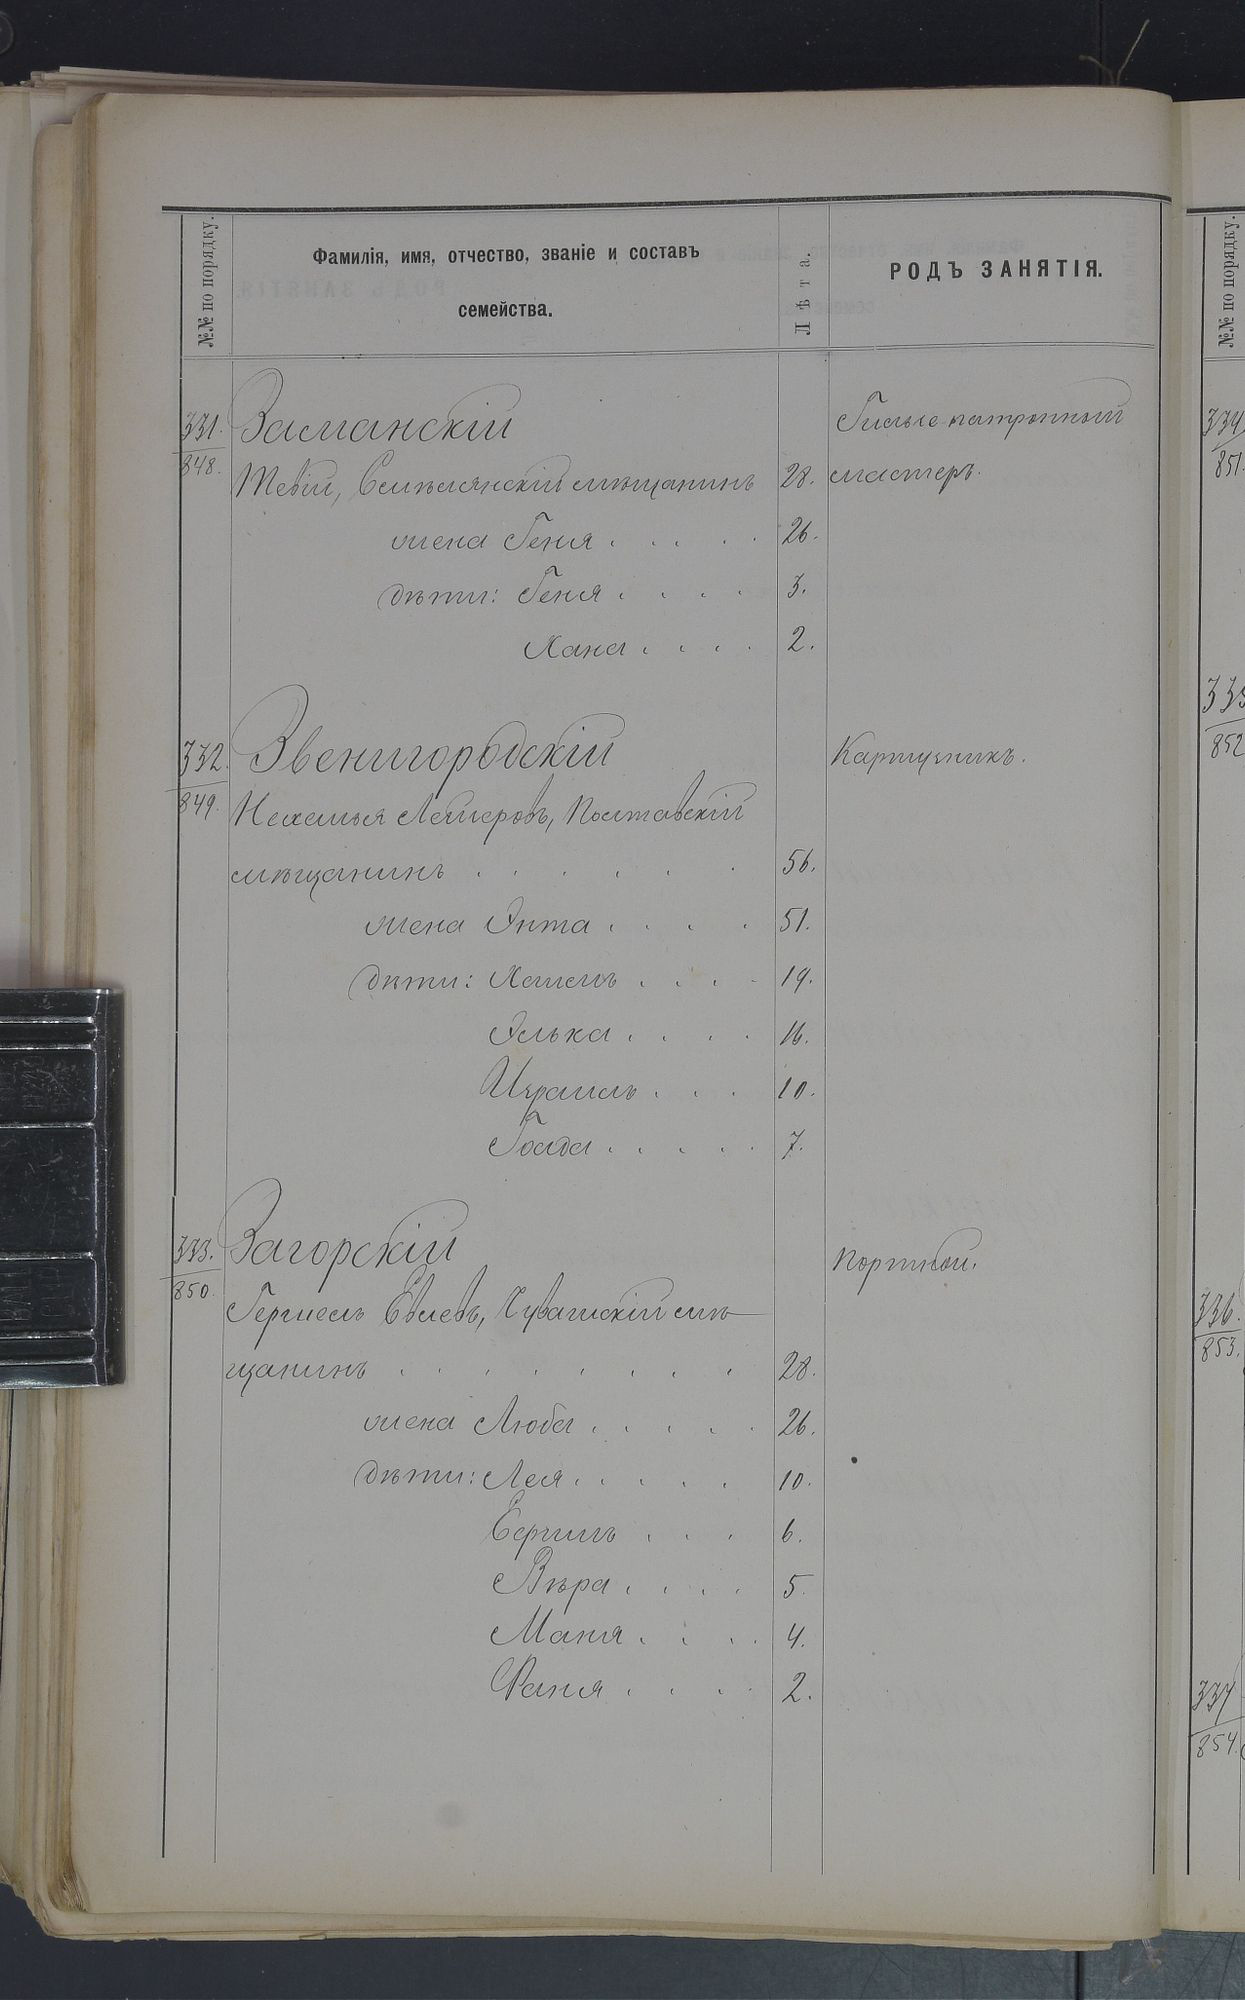 №№ по порядку.
Фамилія, имя, отчество, званіе и составъ
семейства.
Лѣта.
РОДЪ ЗАНЯТІЯ.
№№ по порядку.
331. Заманскій
848.
Гильзе-патронный
Тевій, мѣщанинъ 28. мастеръ.
жена Геня . . . . 26.
дѣти: Геня . . . . 3.
Хана . . . . 2.
332. Звенигородскій Картузникъ.
849. Нехемья Лейзеровъ, Полтавскій
мѣщанинъ . . . . . . 56.
жена Энта . . . . 51.
дѣти: . . . . 19.
Элька . . . . 16.
Израиль . . . 10.
. . . . . 7.
333. Загорскій Портной.
850.
Евлевъ, мѣ-
щанинъ . . . . . . . . 28.
жена Люба . . . . . 26.
дѣти: Лея . . . . . 10.
. . . 6.
Вѣра . . . . 5.
Маня . . . . 4.
Фаня . . . . 2.
334
851.
335
852
336.
853.
337
854.